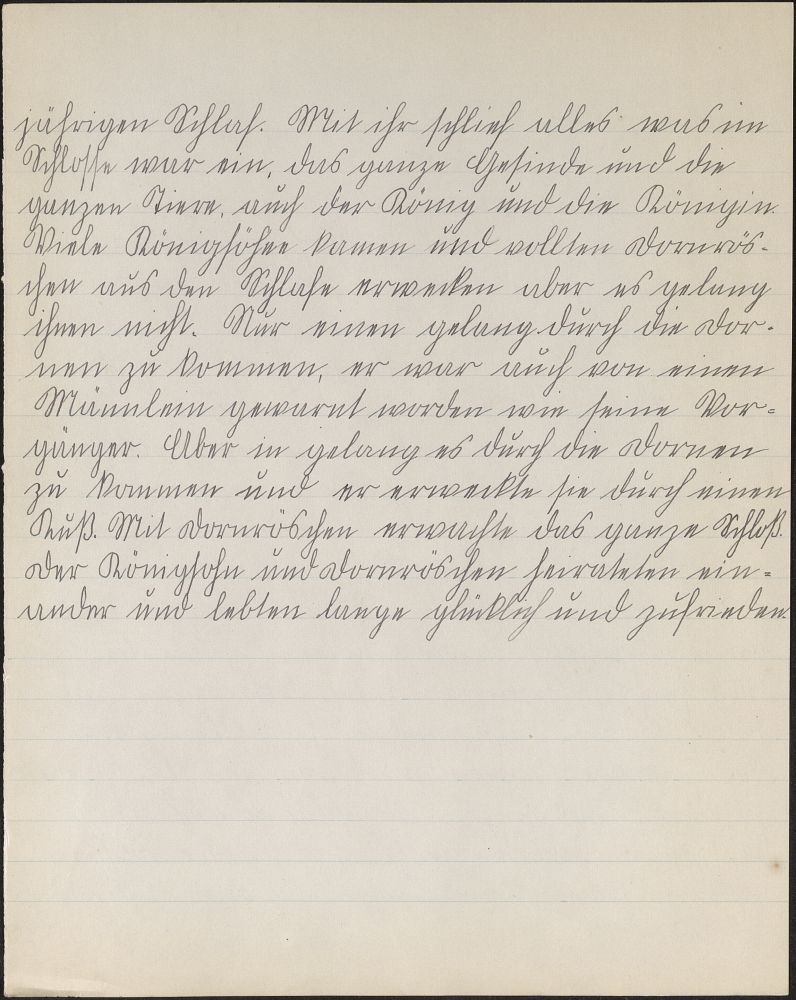 jährigen Schlaf. Mit ihr schlief alles was im
Schlosse war ein, das ganze Gesinde und die
ganzen Tiere, auch der König und die König​in.
Viele Königsöhne kamen und wollten Dornrös-
chen aus den Schlafe erwecken aber es gelang
ihnen nicht. Nur einen gelang durch die Dor-
nen zu kommen, er war auch von einen
Männlein gewarnt worden wie seine Vor-
gänger. Aber in gelang es durch die Dornen
zu kommen und er erweckte sie durch einen
Kuß. Mit Dornröschen erwachte das ganze Schloß.
Der Königsohn und Dornröschen heirateten ein-
ander und lebten lange glücklich und zufrieden.